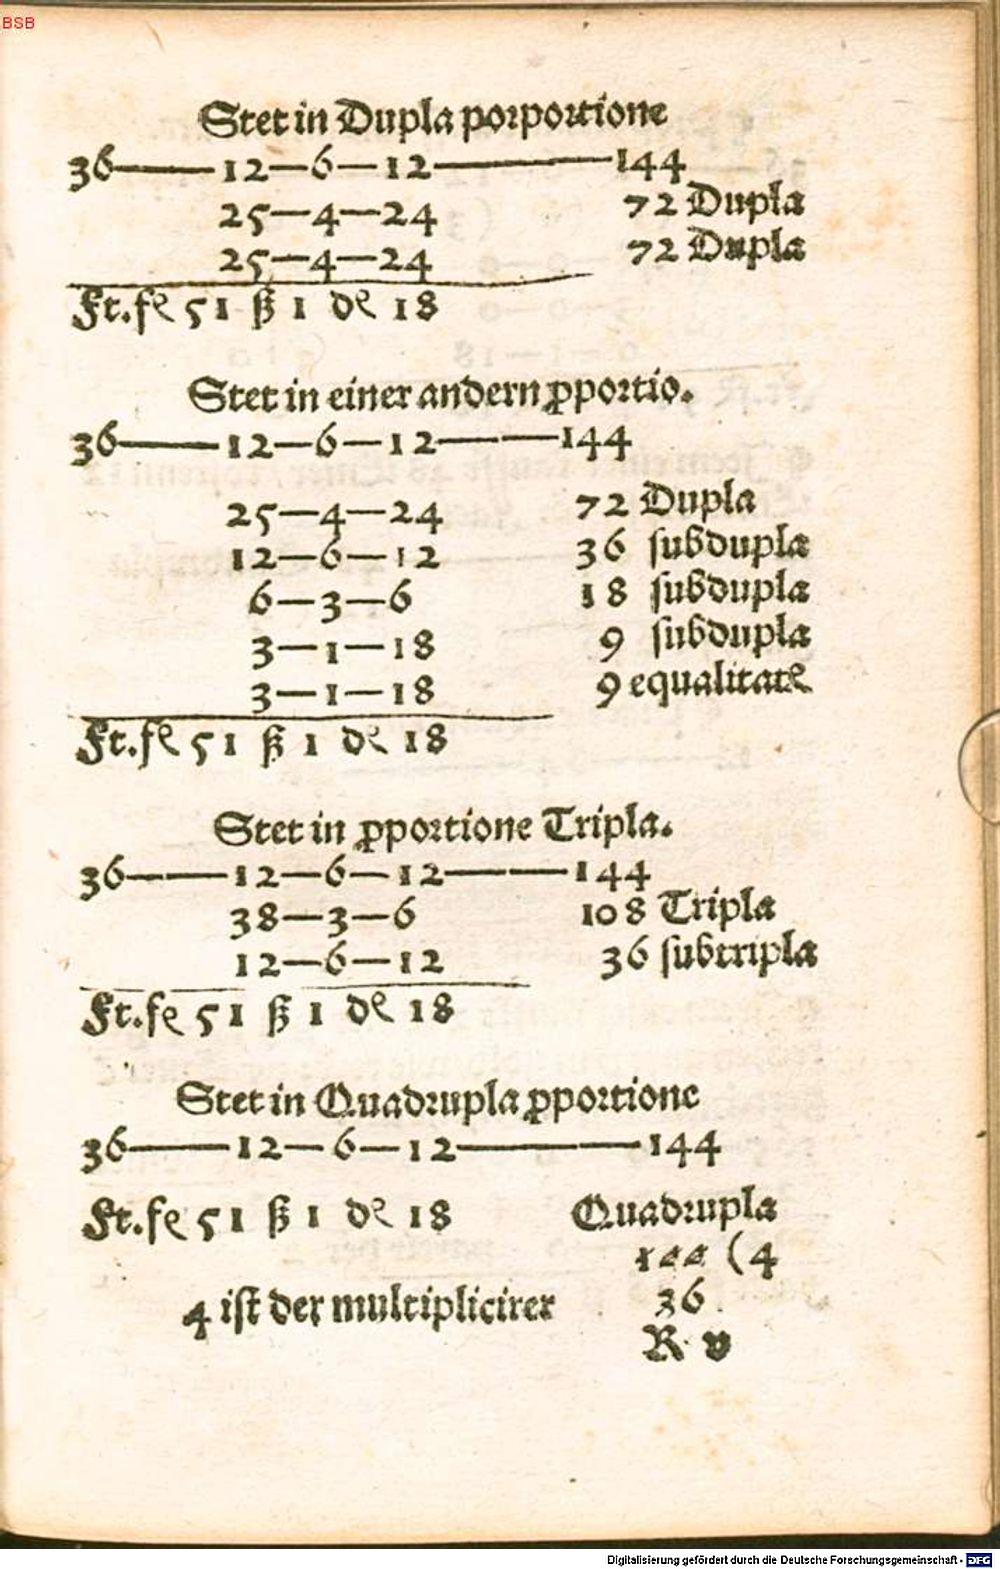 BSB
Stet in Dupla porportione
36—12—6—12—144
25—4—24 72 Dupla
25—4—24 72 Dupla
Ft. fl 51 ß 1 dl 18
Stet in einer andern ꝓportio.
36—12—6—12—144
25—4—24 72 Dupla
12—6—12 36 subdupla
6—3—6 18 subdupla
3—1—18 9 subdupla
3—1—18 9 equalitatꝭ
Ft. fl 51 ß 1 dl 18
Stet in ꝓportione Tripla.
36—12—6—12—144
38—3—6 108 Tripla
12—6—12 36 subtripla
Ft. fl 51 ß 1 dl 18
Stet in Quadrupla ꝓportione
36—12—6—12—144
Ft. fl 51 ß 1 dl 18 Quadrupla
144 (4
4 ist der multiplicirer 36
R v
Digitalisierung gefördert durch die Deutsche Forschungsgemeinschaft - DFG